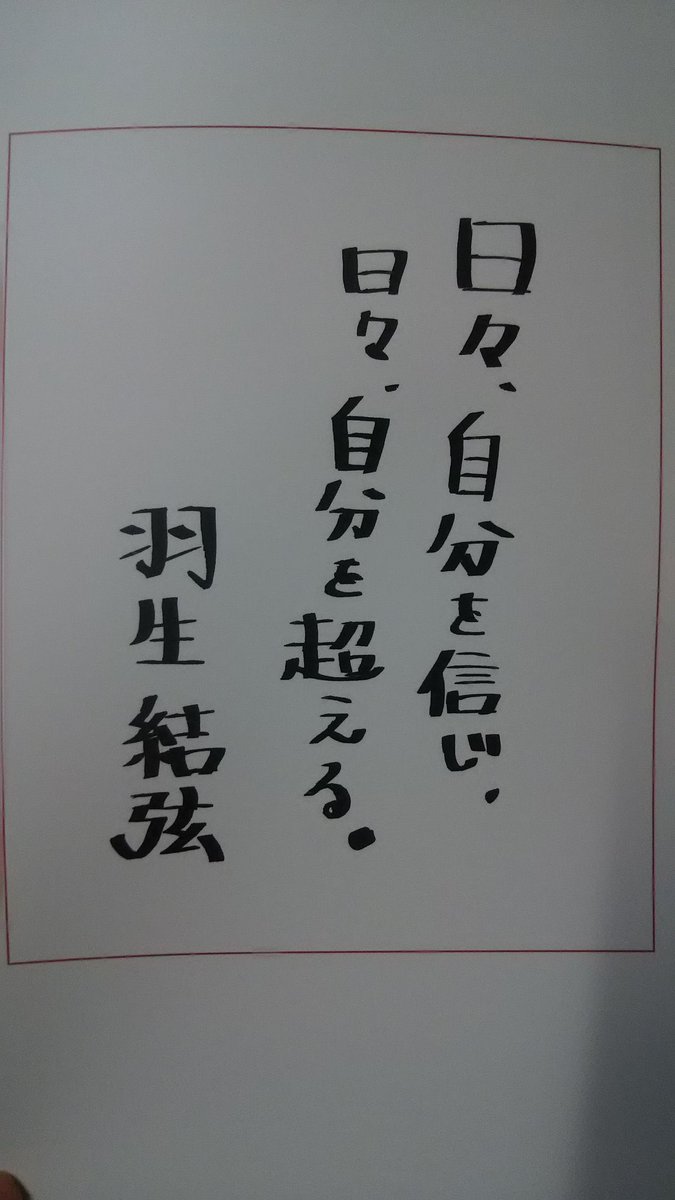 日々、自分を信じ、
日々、自分を超える。
羽生 結弦